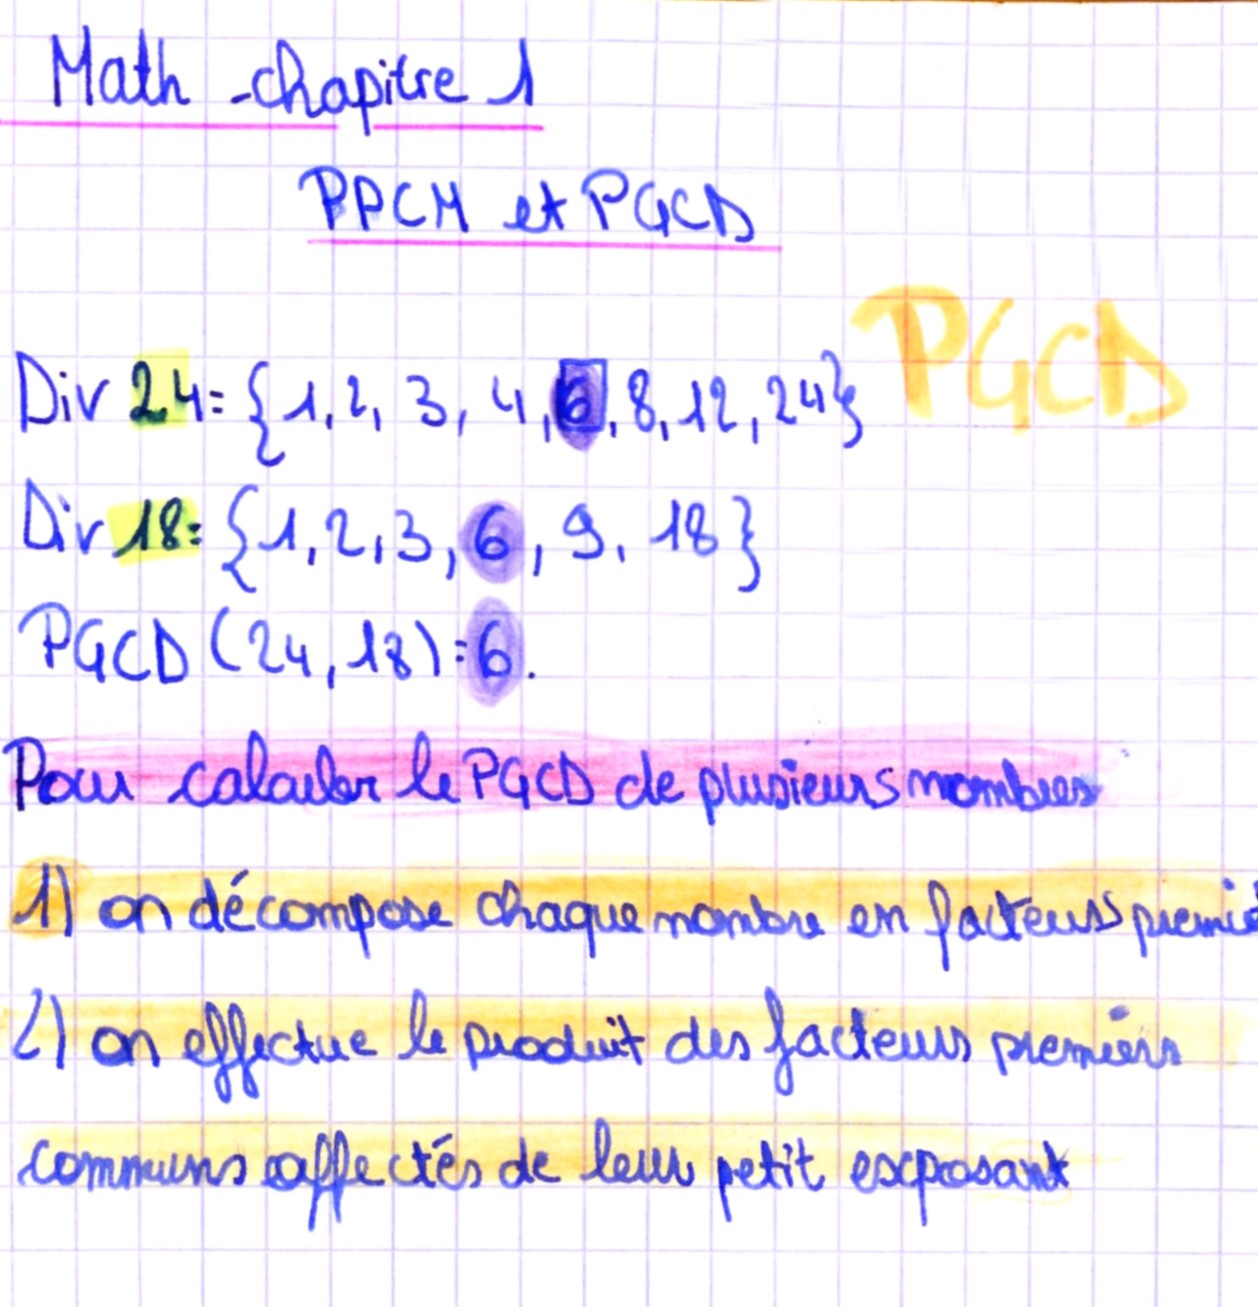 Math - chapitre 1
PPCM et PGCD
PGCD
Div 24 = {1, 2, 3, 4, 6, 8, 12, 24}
Div 18 = {1, 2, 3, 6, 9, 18}
PGCD (24, 18) = 6.
Pour calculer le PGCD de plusieurs nombres
1) on décompose chaque nombre en facteurs premie
2) on effectue le produit des facteurs premiers
communs affectés de leur petit exposant